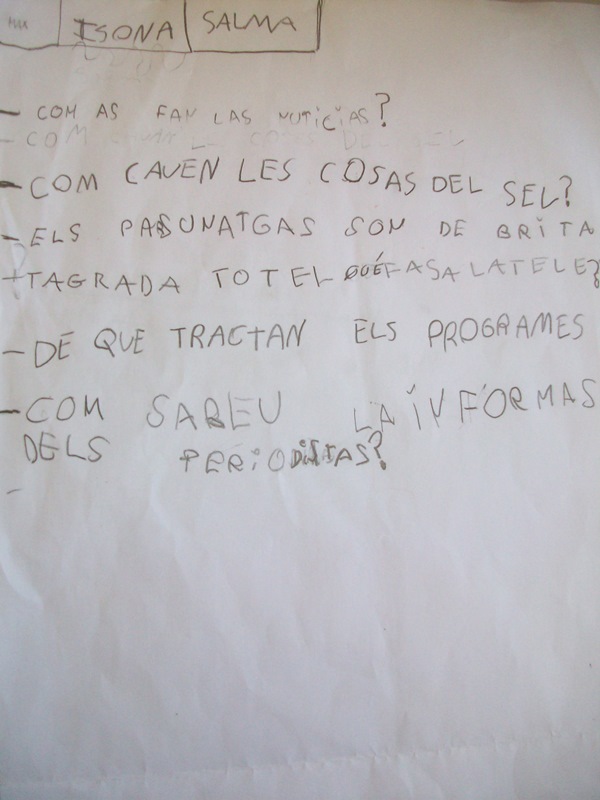 ISONA SALMA
- COM AS FAN LAS NUTICIAS?
- COM
- COM CAUEN LES COSAS DEL SEL?
- ELS PASUNATGAS SON DE BRITA
+ TAGRADA TOT EL QUÉ FAS A LA TELE?
- DE QUE TRACTAN ELS PROGRAMES
- COM SABEU LA INFORMAS
DELS PERIODISTAS?
-